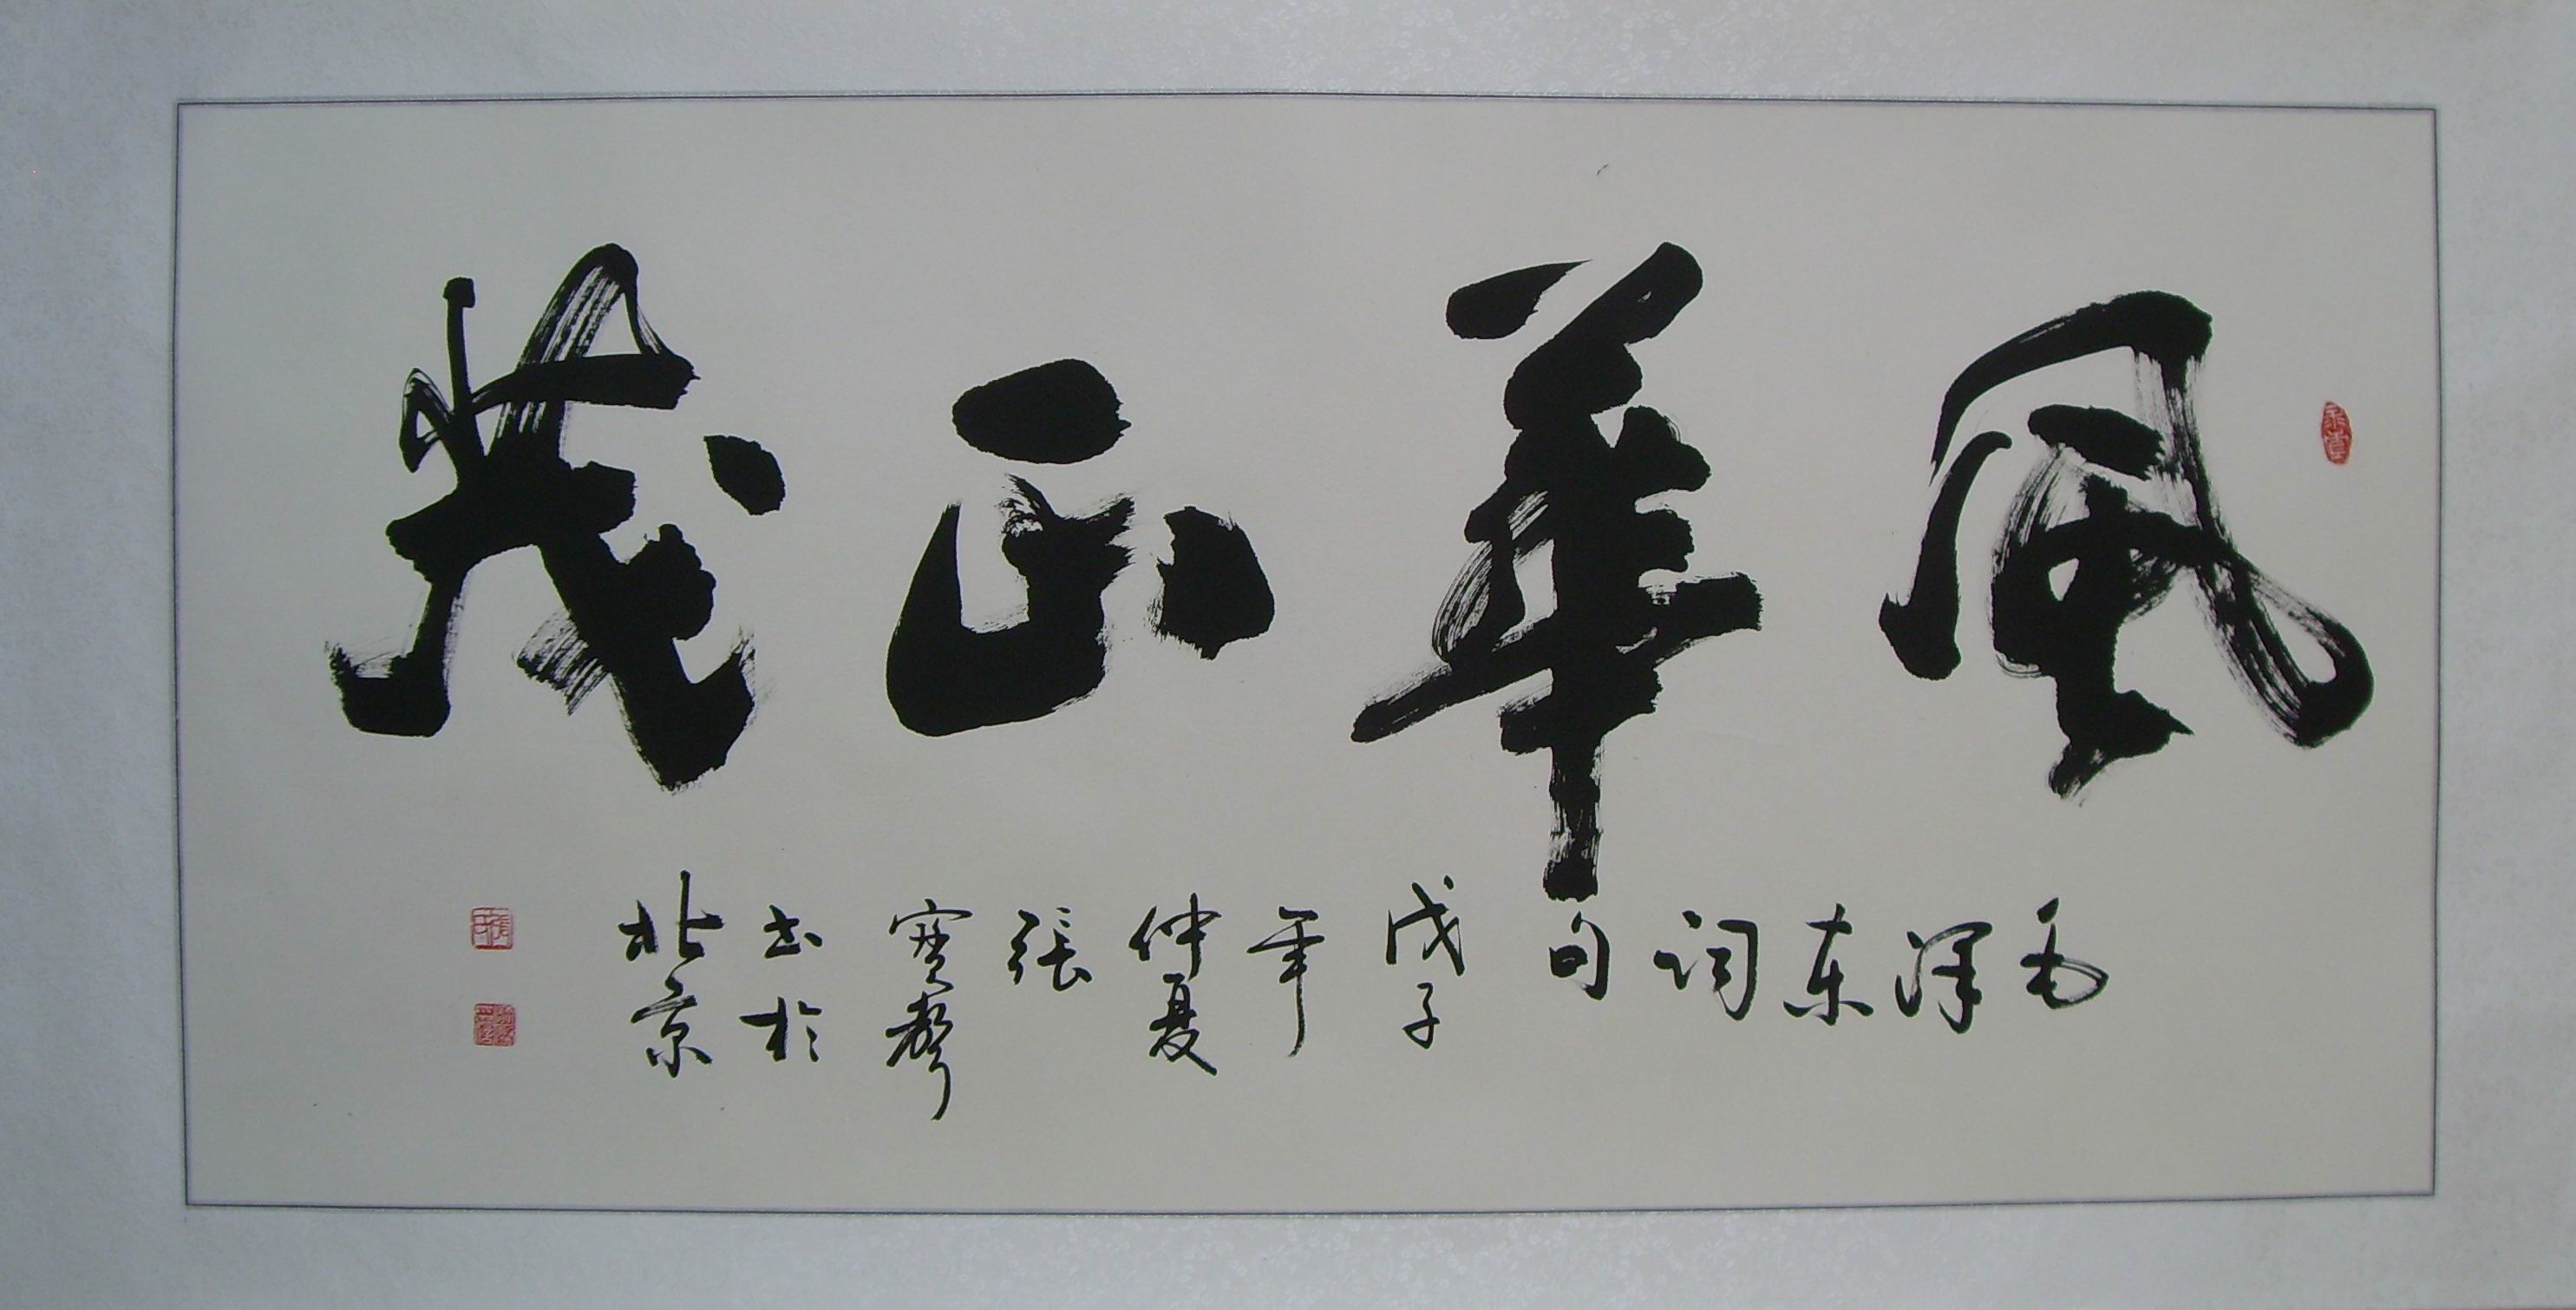 風華正茂
毛泽东词句
戊子年仲夏張寶聲书於北京